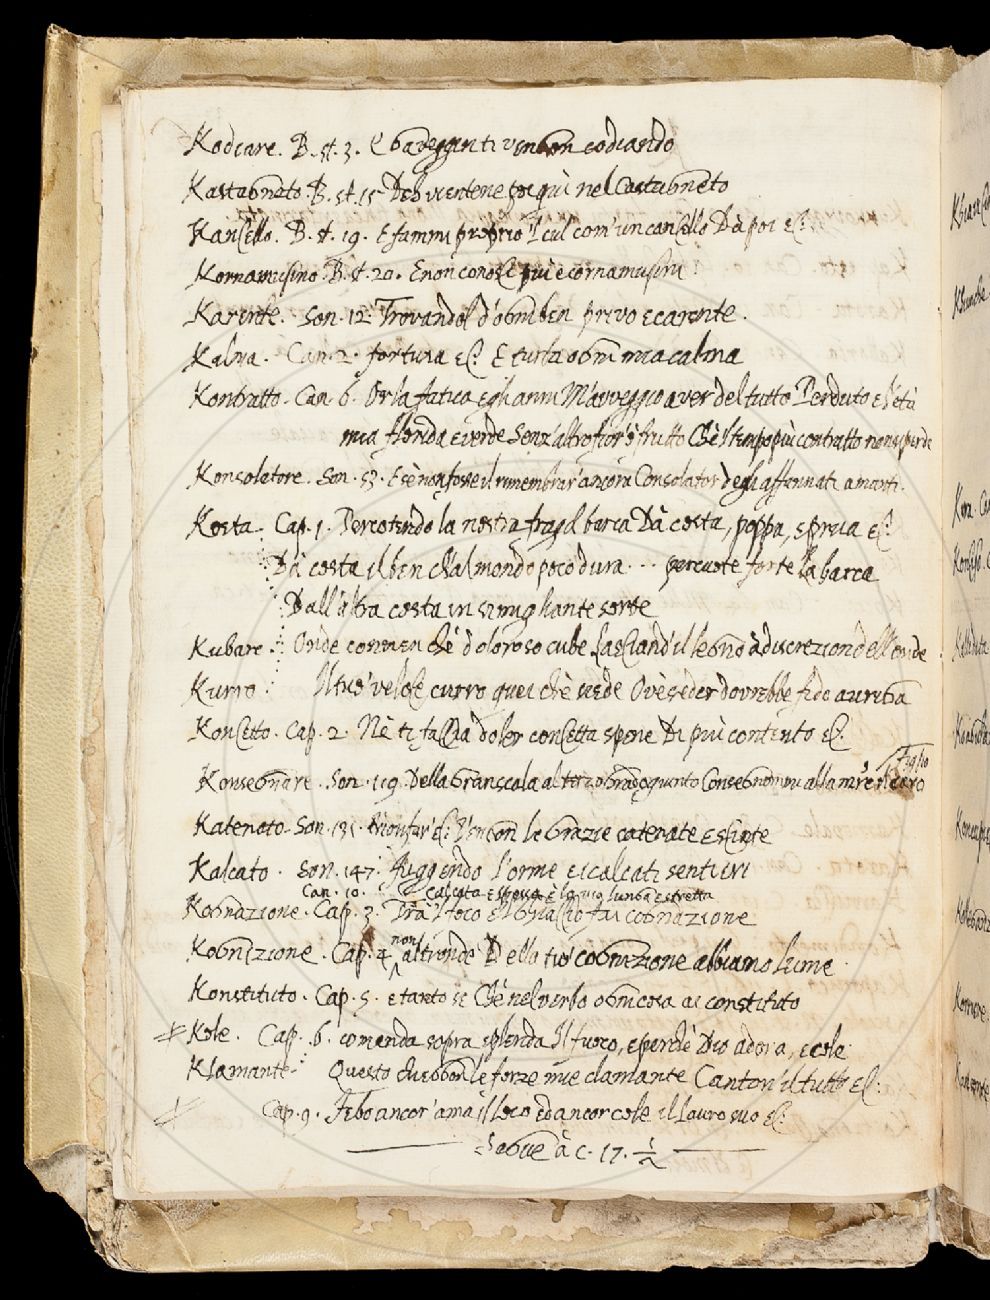 Kodiare. B. st. 3. E baregginti vencon codiando
Kastagneto. B. st. 15 Deh vientene poi quì nel Castagneto
Kancello. B. st. 19. E fammi proprio 'l cul com' un cancello Dà poi &c:
Kornamusino. B. st. 20. E non conosce più ecornamusini
Karente. Son. 12. Trovandol d'ogni ben privo e carente.
Kalma. Can. 2. fortuna &c: E turba ogni mia calma
Kontratto. Can. 6. Or la fatica e gli anni M'avveggio aver del tutto Perduto e l'età
mia florida e verde Senz' altro fior' ò frutto Chè 'l tempo più contratto non si perde
Konsolatore. Son. 53. E sè non fosse il rimembrar' ancora Consolator degli affannati amanti.
Kosta. Cap. 1. Percotendo la nostra fragil barca Dà costa, poppa, e prua &c:
Dà costa il ben ch'al mondo poco dura ... percuote forte la barca
Dall' altra costa in simighante sorte
Kubare. Onde convien chè doloroso cube Lasciand' il legno à discrezion dell' onde
Kurro. Il tuo veloce curro quei chè siede Ovè seder dovrebbe fido auriga
Koncetto. Cap. 2. Nè ti faccia dolor concetta spene Di più contento &c:
Figlio
Konsegnare. Son. 119. Della Gran scala al terzo grado giunto Consegnommi alla m're il caro
Katenato. Son. 131. Trionfar &c: Vencon le Grazie catenate e scinte
Kalcato. Son. 147. Fuggendo l'orme e i calcati sentieri
Can. 10. Calcata e stessa è la via lunga e stretta
Kognazione. Cap. 3. Trà 'l foco e 'l ghiaccio fai cognazione
non
Kognizione. Cap. 4. altronde Della tuo cognizione abbiamo lume
Konstituto. Cap. 5. e tanto si Chè nel verbo ogni cosa ai constituto
Kole. Cap. 6. comanda sopra splenda Il fuoco, e perchè Dio adora, e cole
Klamante. Questo chieggon le forze mie clamante Canton' il tutto &c:
Cap. 9. Febo ancor' ama il loco ed ancor cole il Lauro suo &c:
Segue à c. 17. ½